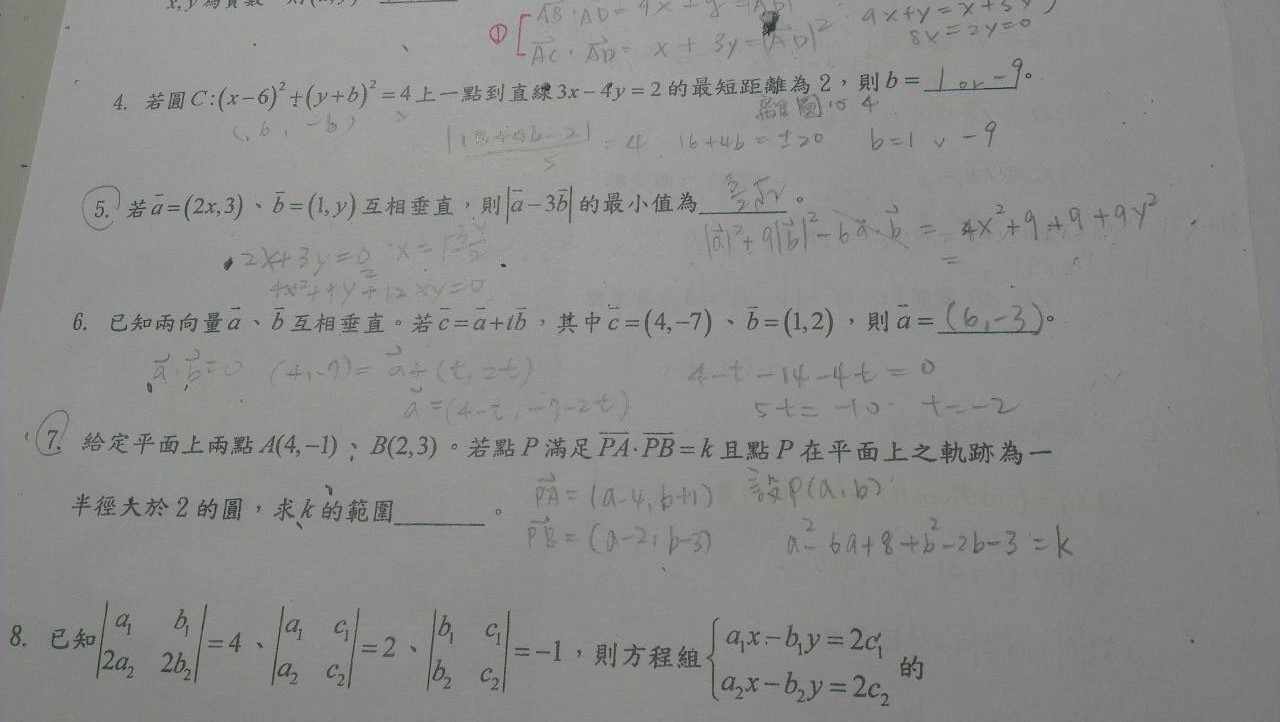 x, y 為實數
AB·AD = 9x + y = |AD|
9x+y=x+3y
① AC·AD = x + 3y = |AD|²
8x=2y=0
4. 若圓 C:(x−6)²+(y+b)²=4上一點到直線3x−4y=2的最短距離為2，則b= 1 or −9。
(6, −b)
離圓心 4
= 4 16+4b=±20 b=1 ∨ −9
5. 若a=(2x,3)、b=(1,y)互相垂直，則|a−3b|的最小值為 3/2√2 。
|a|²+9|b|²−6a·b = 4x²+9+9+9y²
2x+3y=0 x=
=
4x²+9y²+12xy=0
6. 已知兩向量a、b互相垂直。若c=a+tb，其中c=(4,−7)、b=(1,2)，則a= (6,−3)。
a·b=0 (4,−7)= a+(t, 2t) 4−t−14−4t=0
a=(4−t, −7−2t) 5t=−10 t=−2
7. 給定平面上兩點A(4,−1)、B(2,3)。若點P滿足PA·PB=k且點P在平面上之軌跡為一
半徑大於2的圓，求k的範圍 。
PA=(a−4, b+1) 設P(a,b)
PB=(a−2, b−3) a²−6a+8+b²−2b−3=k
8. 已知|a₁ b₁; 2a₂ 2b₂|=4、|a₁ c₁; a₂ c₂|=2、|b₁ c₁; b₂ c₂|=−1，則方程組{a₁x−b₁y=2c₁; a₂x−b₂y=2c₂ 的